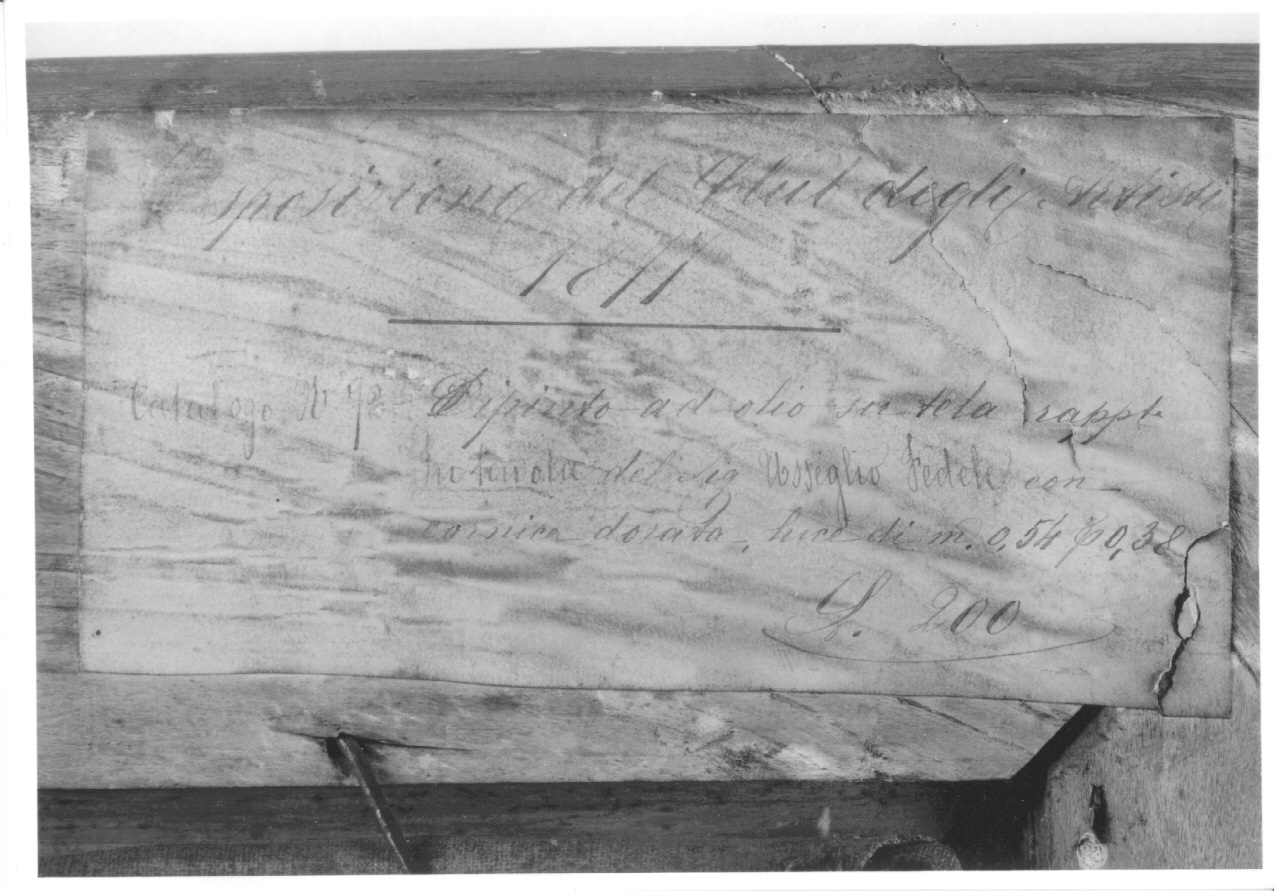 sposizione del Club degli Artisti
1877
Catalogo N 92 Dipinto ad olio su tela rappte
del sig Usseglio Fedele con
cornice dorata, luce di m. 0,54 % 0,38
L. 200